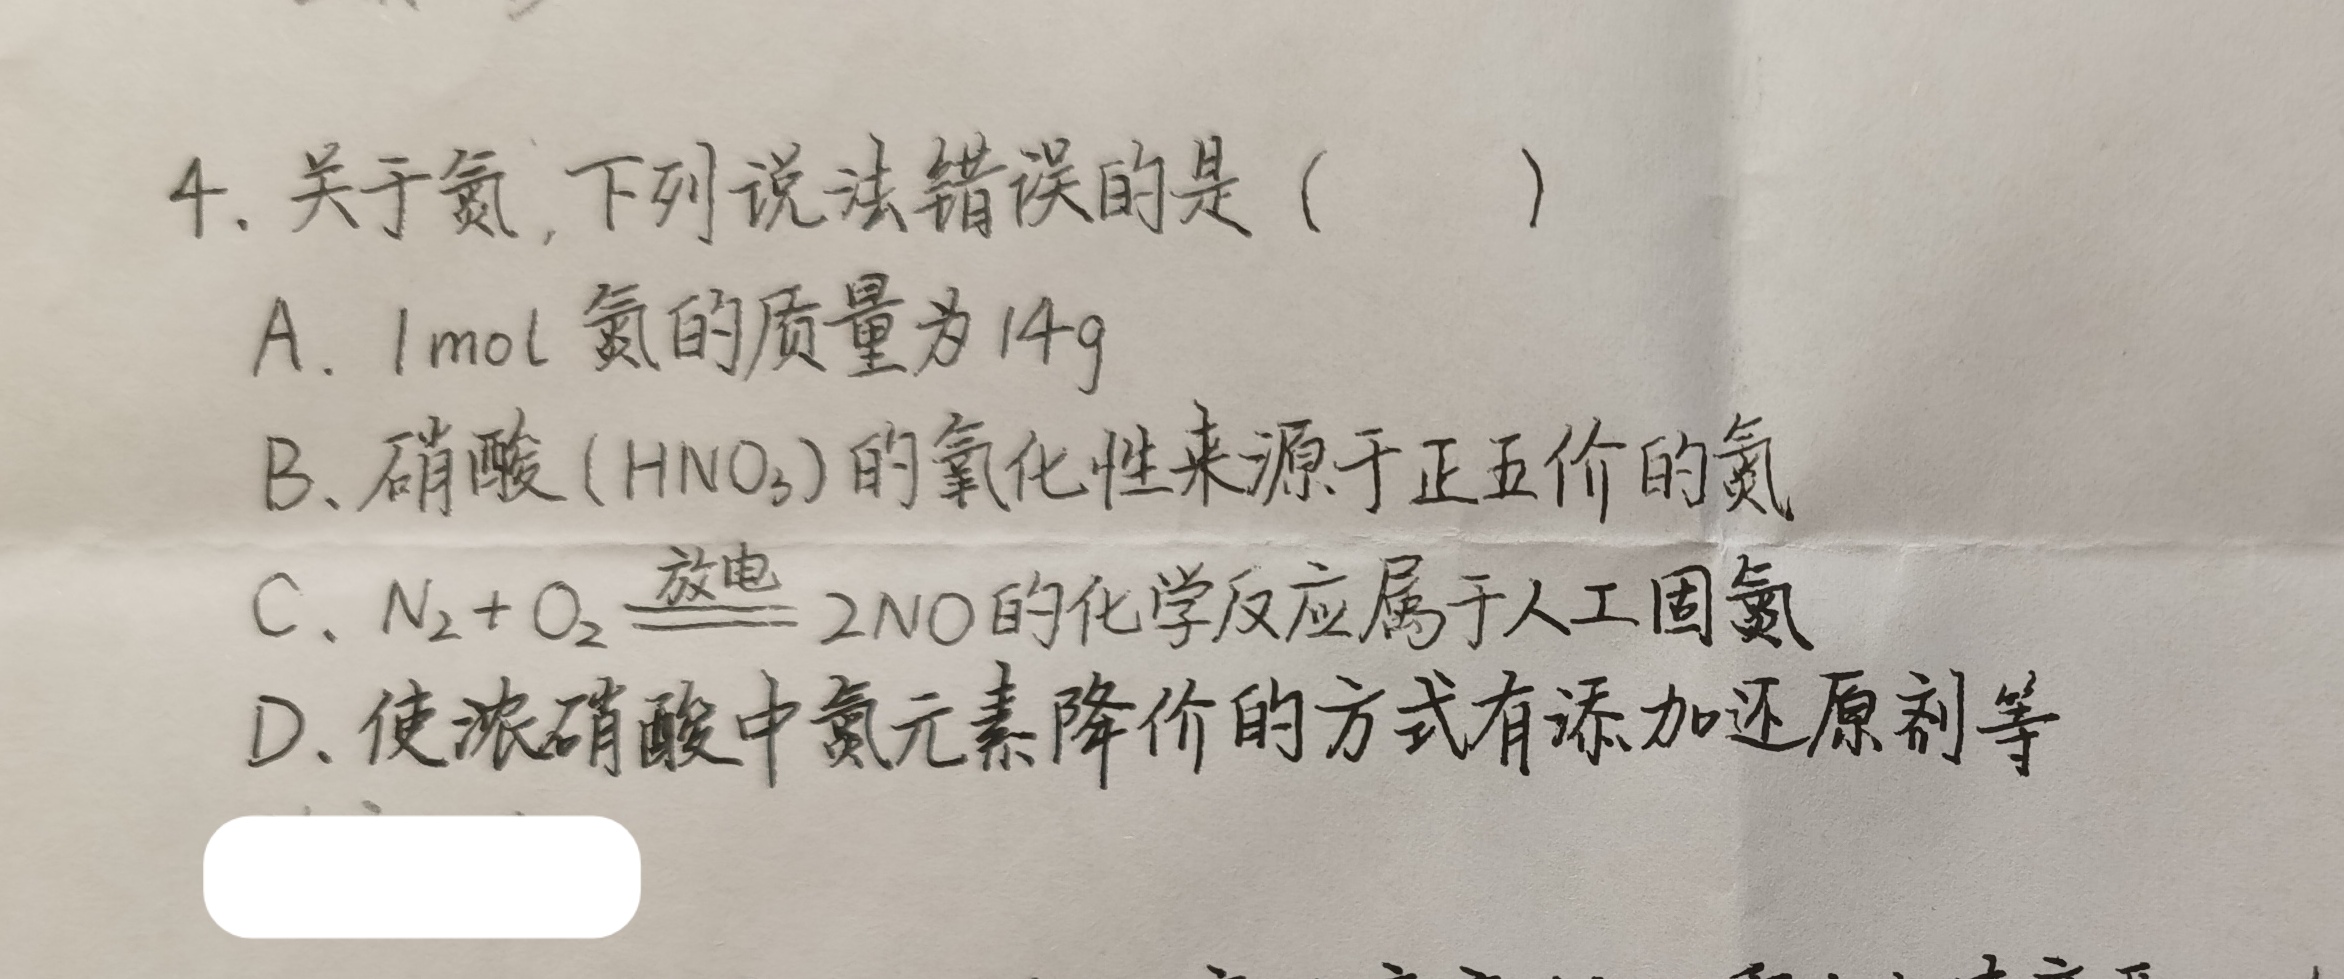 4. 关于氮,下列说法错误的是( )
A. 1mol 氮的质量为14g
B、硝酸(HNO₃)的氧化性来源于正五价的氮
C、N₂+O₂ 放电 2NO的化学反应属于人工固氮
D、使浓硝酸中氮元素降价的方式有添加还原剂等